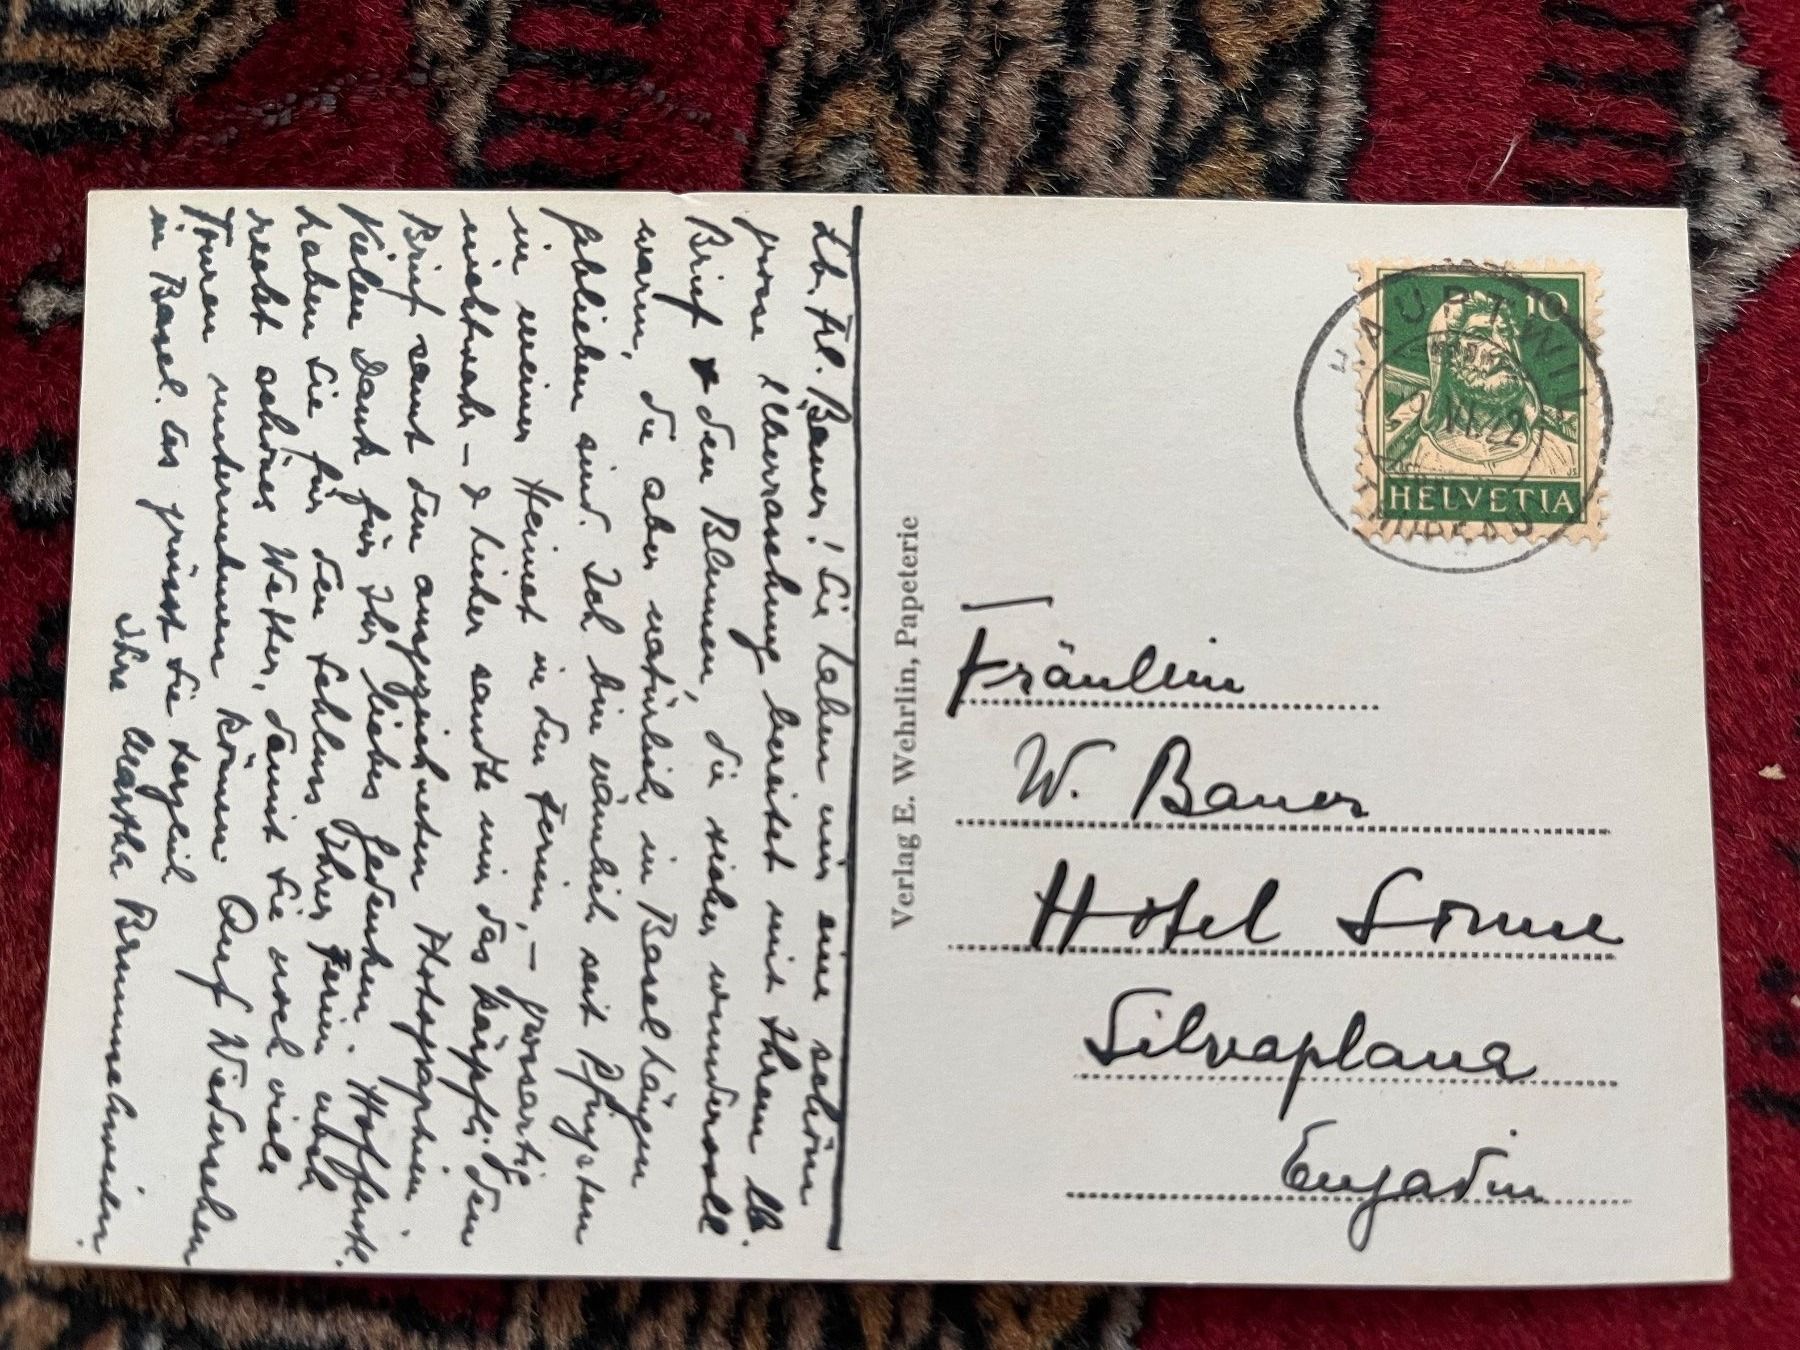 Lb. Frl. Bauer! Sie haben mir eine schöne
grosse Überraschung bereitet mit Ihrem lb.
Brief & den Blumen, die sicher wundervoll
waren, die aber natürlich in Basel hängen
geblieben sind. Ich bin nämlich seit Pfingsten
in meiner Heimat in den Ferien, – grossartig
nichtwahr – & hieher sandte mir das den
Brief samt den ausgezeichneten Photographien.
Vielen Dank für Ihr liebes Gedenken. Hoffentl.
haben Sie für den Schluss Ihrer Ferien noch
recht schönes Wetter, damit Sie noch viele
Touren unternehmen können. Auf Wiedersehen
in Basel. Es grüsst Sie herzlich
Ihre Martha Brunnschweiler.
Verlag E. Wehrlin, Papeterie
10
HELVETIA
HAUPTWIL
VI.22
Fräulein
W. Bauer
Hotel Sonne
Silvaplana
Engadin